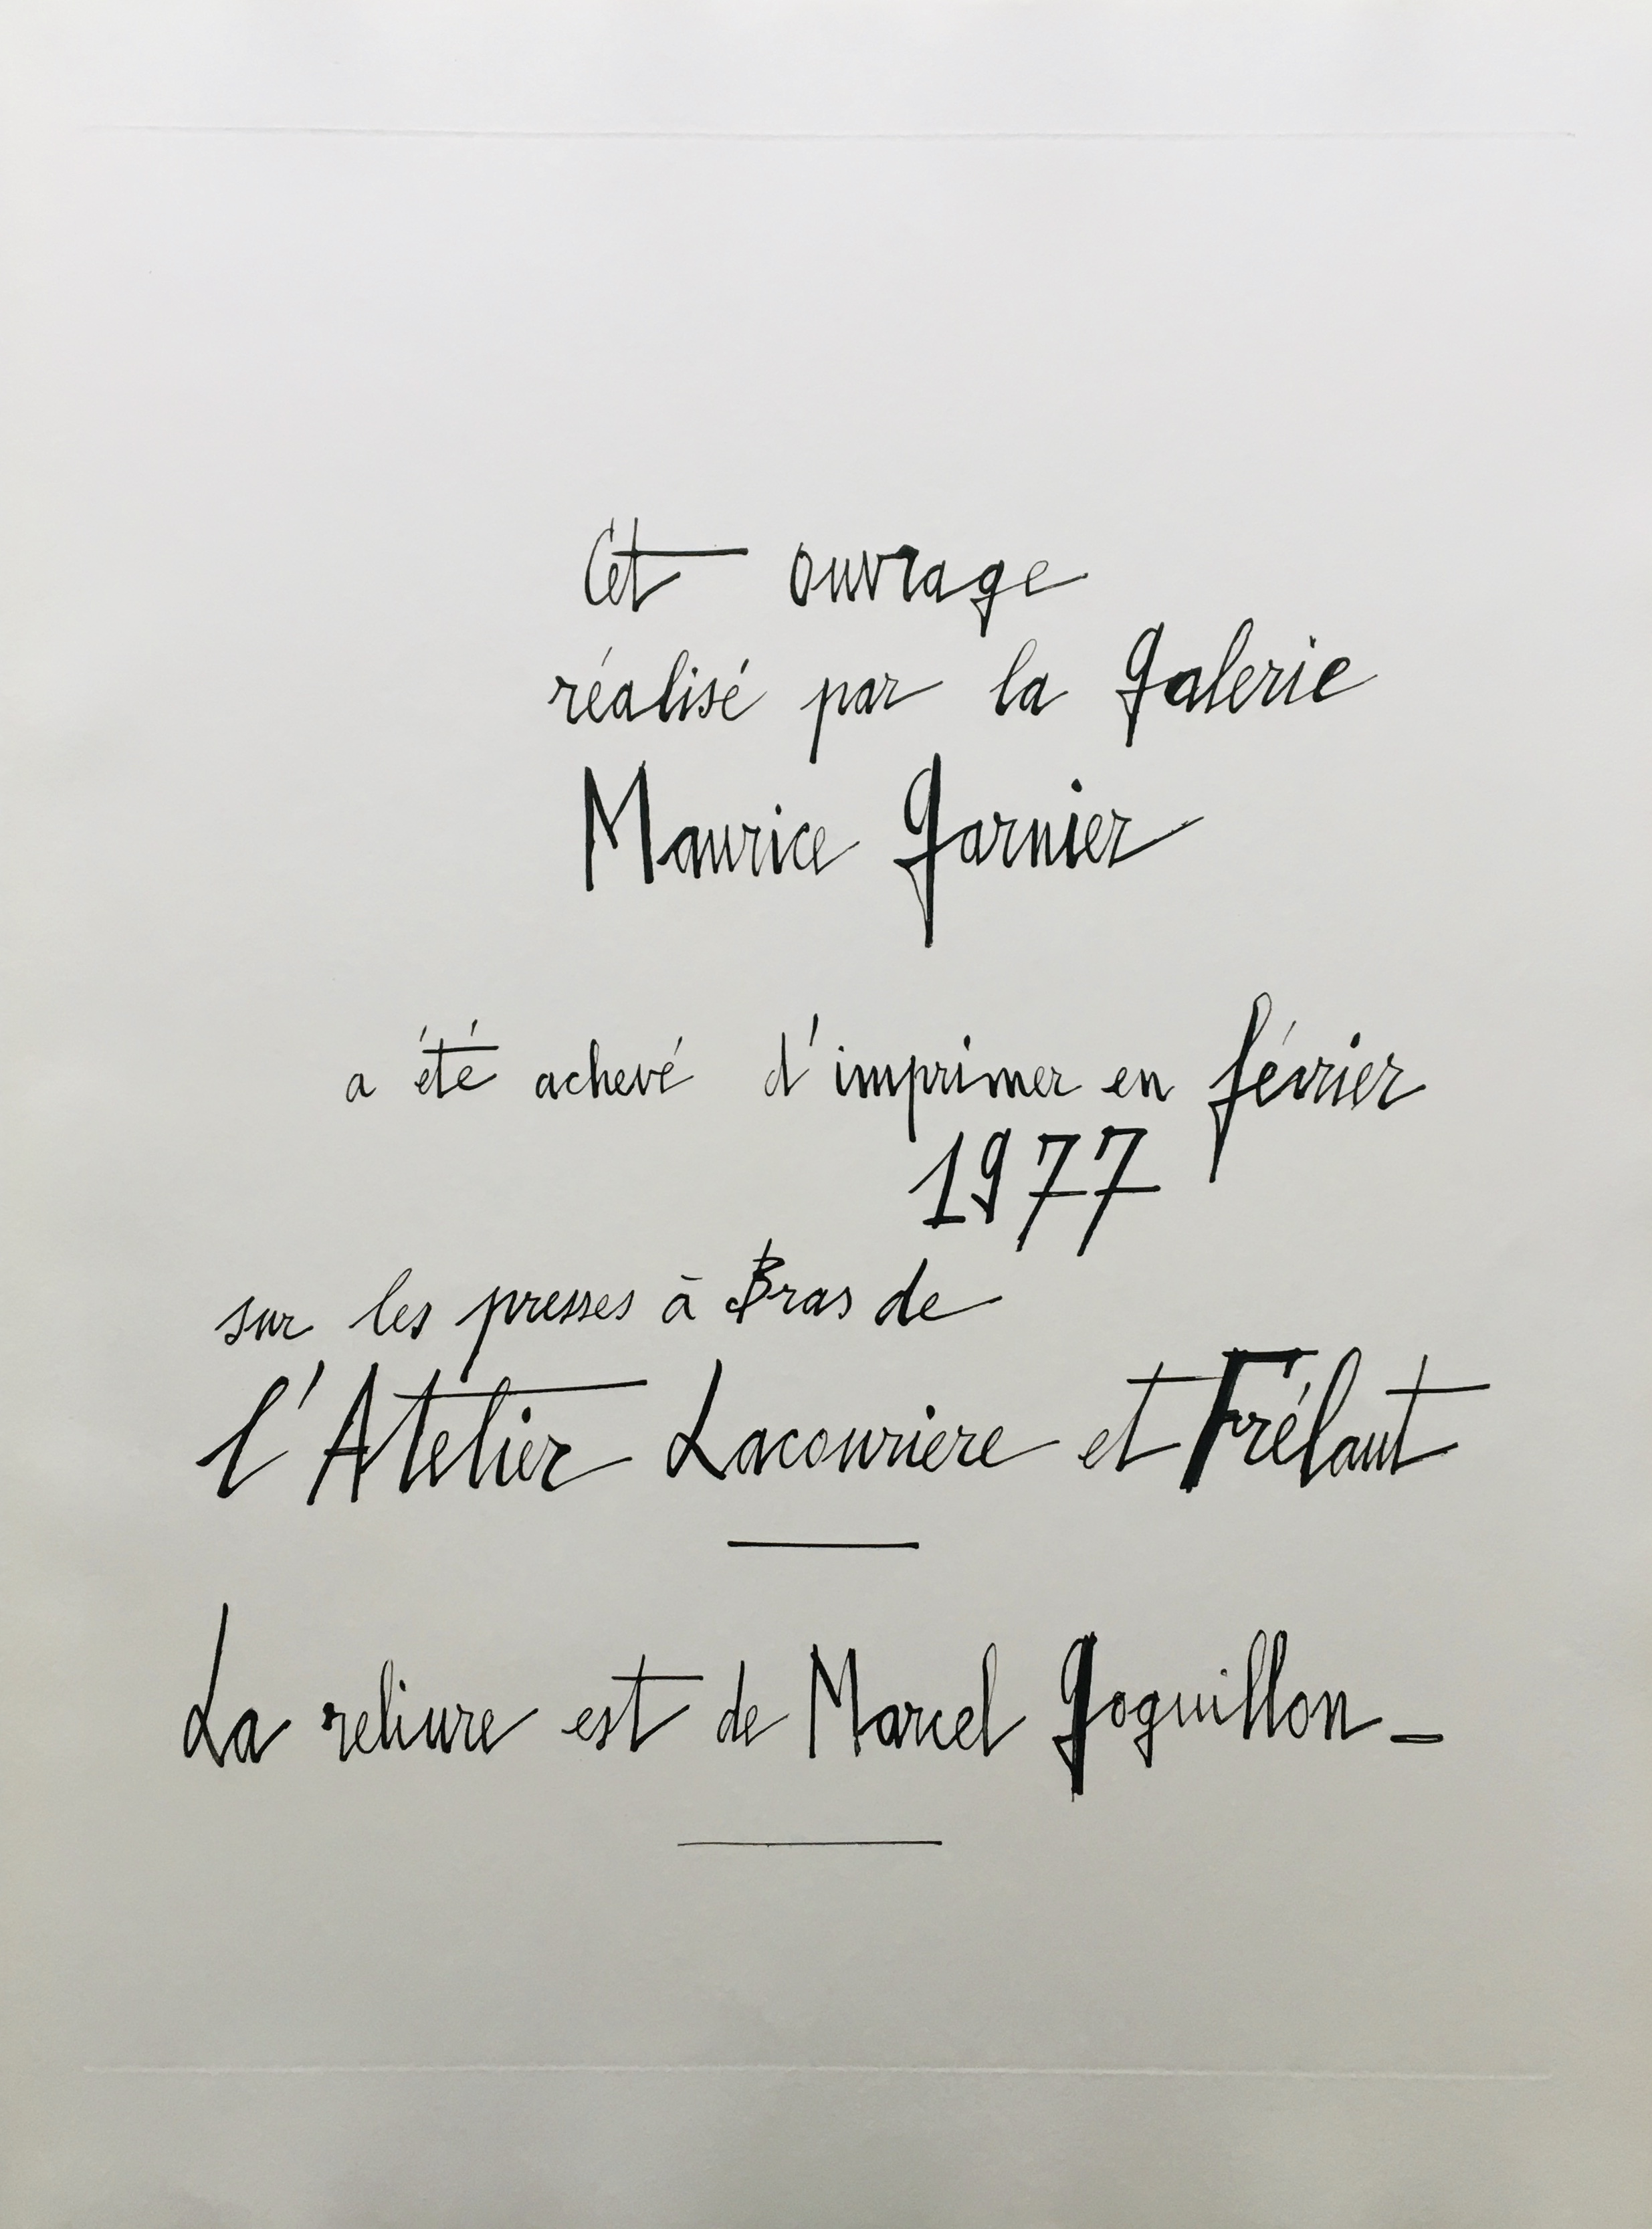 Cet ouvrage
réalisé par la Galerie
Maurice Garnier
a été achevé d'imprimer en février
1977
sur les presses à Bras de
l'Atelier Lacouriere et Frélaut
La reliure est de Marcel Goguillon_